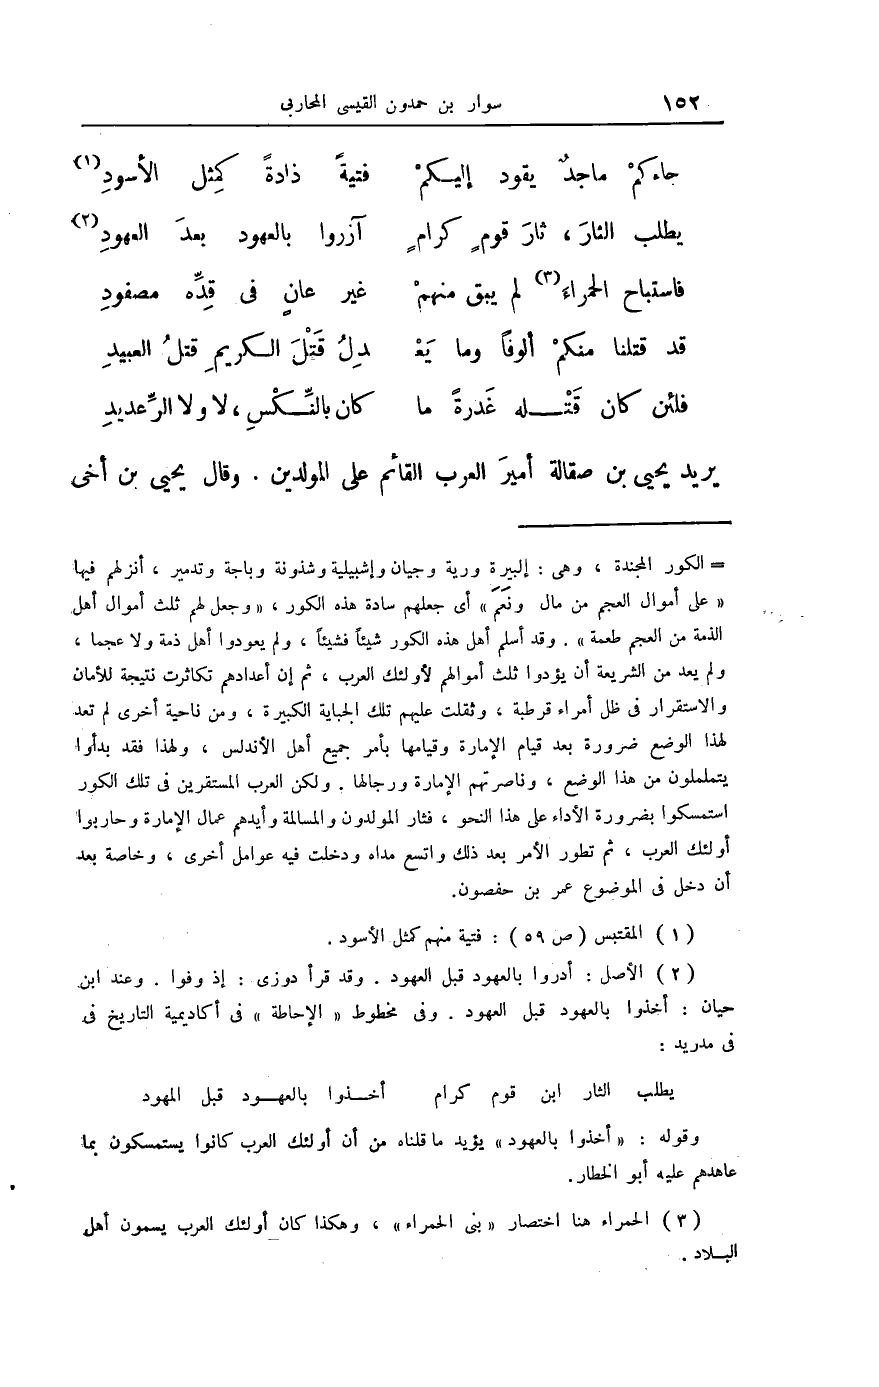 ١٥٢ سوار بن حمدون القيسى المحاربى
جاءكمْ ماجدٌ يقود إليكمْ فتيةً ذادةً كمِثل الأسودِ (١)
يطلب الثارَ ، ثارَ قومٍ كرامٍ آزروا بالعهود بعدَ العهودِ (٢)
فاستباح الحمراءَ (٣) لم يبق منهمْ غير عانٍ فى قِدِّه مصفودِ
قد قتلنا منكمْ ألوفاً وما يَعْـ ـدِلُ قَتْلَ الكريمِ قتلُ العبيدِ
فلئن كان قَتْله غَدرةً ما كان بالنِّكْسِ ، لا ولا الرِّعديدِ
يريد يحيى بن صقالة أميرَ العرب القائم على المولدين . وقال يحيى بن أخى
= الكور المجندة ، وهى : إلبيرة ورية وجيان وإشبيلية وشذونة وباجة وتدمير ، أنزلهم فيها
« على أموال العجم من مال ونَعَم » أى جعلهم سادة هذه الكور ، « وجعل لهم ثلث أموال أهل
الذمة من العجم طعمة » . وقد أسلم أهل هذه الكور شيئاً فشيئاً ، ولم يعودوا أهل ذمة ولا عجما ،
ولم يعد من الشريعة أن يؤدوا ثلث أموالهم لأولئك العرب ، ثم إن أعدادهم تكاثرت نتيجة للأمان
والاستقرار فى ظل أمراء قرطبة ، وثقلت عليهم تلك الجباية الكبيرة ، ومن ناحية أخرى لم تعد
لهذا الوضع ضرورة بعد قيام الإمارة وقيامها بأمر جميع أهل الأندلس ، ولهذا فقد بدأوا
يتململون من هذا الوضع ، وناصرتهم الإمارة ورجالها . ولكن العرب المستقرين فى تلك الكور
استمسكوا بضرورة الأداء على هذا النحو ، فثار المولدون والمسالمة وأيدهم عمال الإمارة وحاربوا
أولئك العرب ، ثم تطور الأمر بعد ذلك واتسع مداه ودخلت فيه عوامل أخرى ، وخاصة بعد
أن دخل فى الموضوع عمر بن حفصون.
( ١ ) المقتبس ( ص ٥٩ ) : فتية منهم كمثل الأسود .
( ٢ ) الأصل : أدروا بالعهود قبل العهود . وقد قرأ دوزى : إذ وفوا . وعند ابن
حيان : أخذوا بالعهود قبل العهود . وفى مخطوط « الإحاطة » فى أكاديمية التاريخ فى
فى مدريد :
يطلب الثار ابن قوم كرام أخذوا بالعهود قبل المهود
وقوله : « أخذوا بالعهود » يؤيد ما قلناه من أن أولئك العرب كانوا يستمسكون بما
عاهدهم عليه أبو الخطار.
( ٣ ) الحمراء هنا اختصار « بنى الحمراء » ، وهكذا كان أولئك العرب يسمون أهل
البلاد .